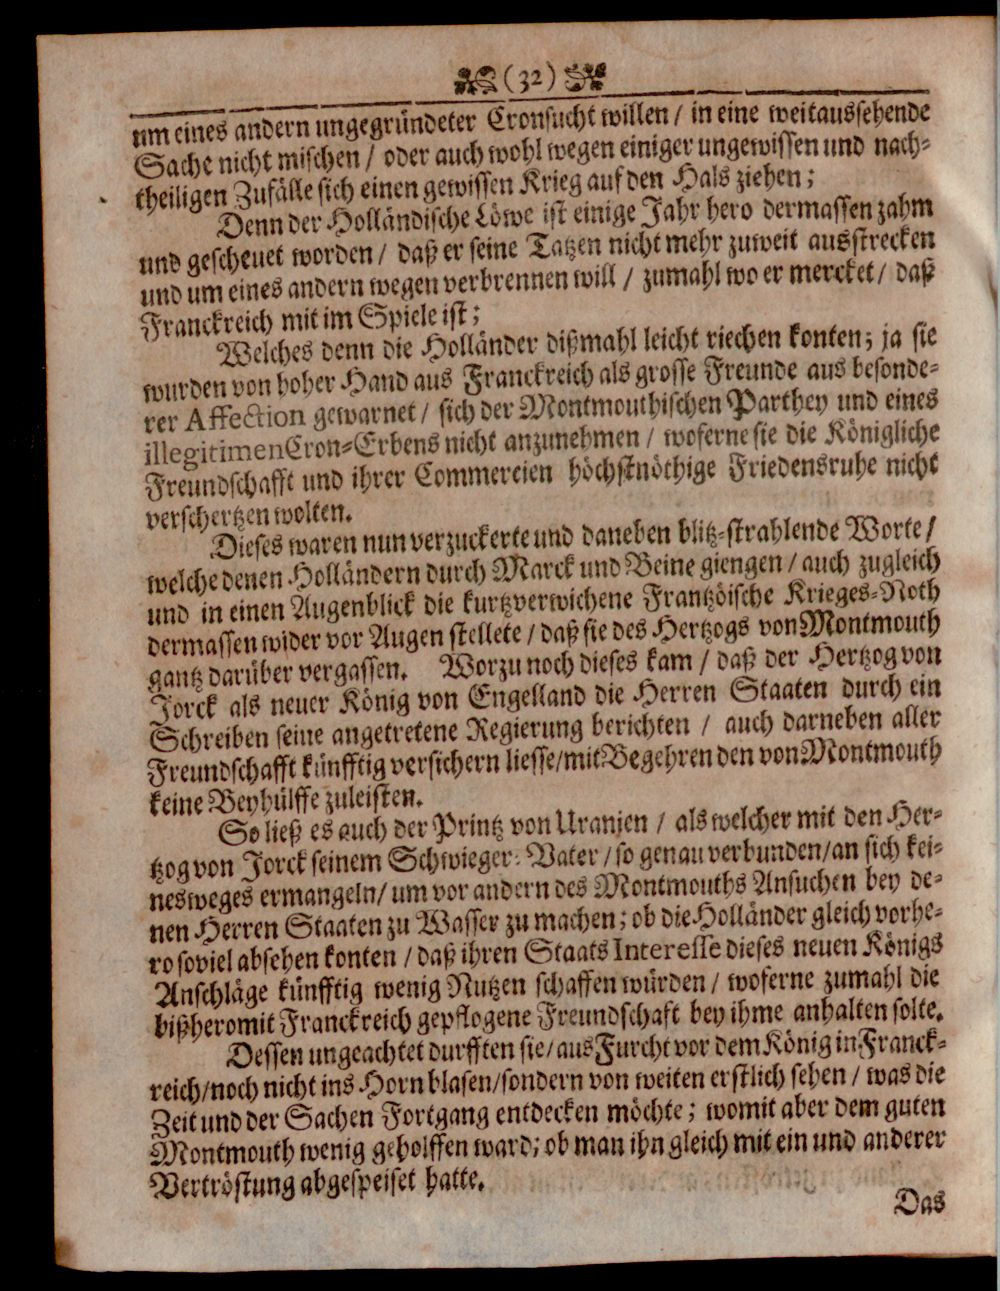 (32)
um eines andern ungegründeter Cronsucht willen / in eine weitaussehende
Sache nicht mischen / oder auch wohl wegen einiger ungewissen und nach-
theiligen Zufälle sich einen gewissen Krieg auf den Hals ziehen;
Denn der Holländische Löwe ist einige Jahr hero dermassen zahm
und gescheuet worden / daß er seine Tatzen nicht mehr zuweit ausstrecken
und um eines andern wegen verbrennen will / zumahl wo er mercket / daß
Franckreich mit im Spiele ist;
Welches denn die Holländer dißmahl leicht riechen konten; ja sie
wurden von hoher Hand aus Franckreich als grosse Freunde aus besonde-
rer Affection gewarnet / sich der Montmouthischen Parthey und eines
illegitimen Cron-Erbens nicht anzunehmen / woferne sie die Königliche
Freundschafft und ihrer Commercien höchstnöthige Friedensruhe nicht
verschertzen wolten.
Dieses waren nun verzuckerte und daneben blitz-strahlende Worte /
welche denen Holländern durch Marck und Beine giengen / auch zugleich
und in einen Augenblick die kurtzverwichene Frantzöische Krieges-Noth
dermassen wider vor Augen stellete / daß sie des Hertzogs von Montmouth
gantz darüber vergassen. Worzu noch dieses kam / daß der Hertzog von
Jorck als neuer König von Engelland die Herren Staaten durch ein
Schreiben seine angetretene Regierung berichten / auch darneben aller
Freundschafft künfftig versichern liesse/mit Begehren den von Montmouth
keine Beyhülffe zuleisten.
So ließ es auch der Printz von Uranien / als welcher mit den Her-
tzog von Jorck seinem Schwieger-Vater / so genau verbunden/an sich kei-
nesweges ermangeln/ um vor andern des Montmouths Ansuchen bey de-
nen Herren Staaten zu Wasser zu machen; ob die Holländer gleich vorhe-
ro soviel absehen konten / daß ihren Staats Interesse dieses neuen Königs
Anschläge künfftig wenig Nutzen schaffen würden / woferne zumahl die
bißhero mit Franckreich gepflogene Freundschaft bey ihme anhalten solte.
Dessen ungeachtet durfften sie/aus Furcht vor dem König in Franck-
reich/noch nicht ins Horn blasen/sondern von weiten erstlich sehen / was die
Zeit und der Sachen Fortgang entdecken möchte; womit aber dem guten
Montmouth wenig geholffen ward; ob man ihn gleich mit ein und anderer
Vertröstung abgespeiset hatte.
Das